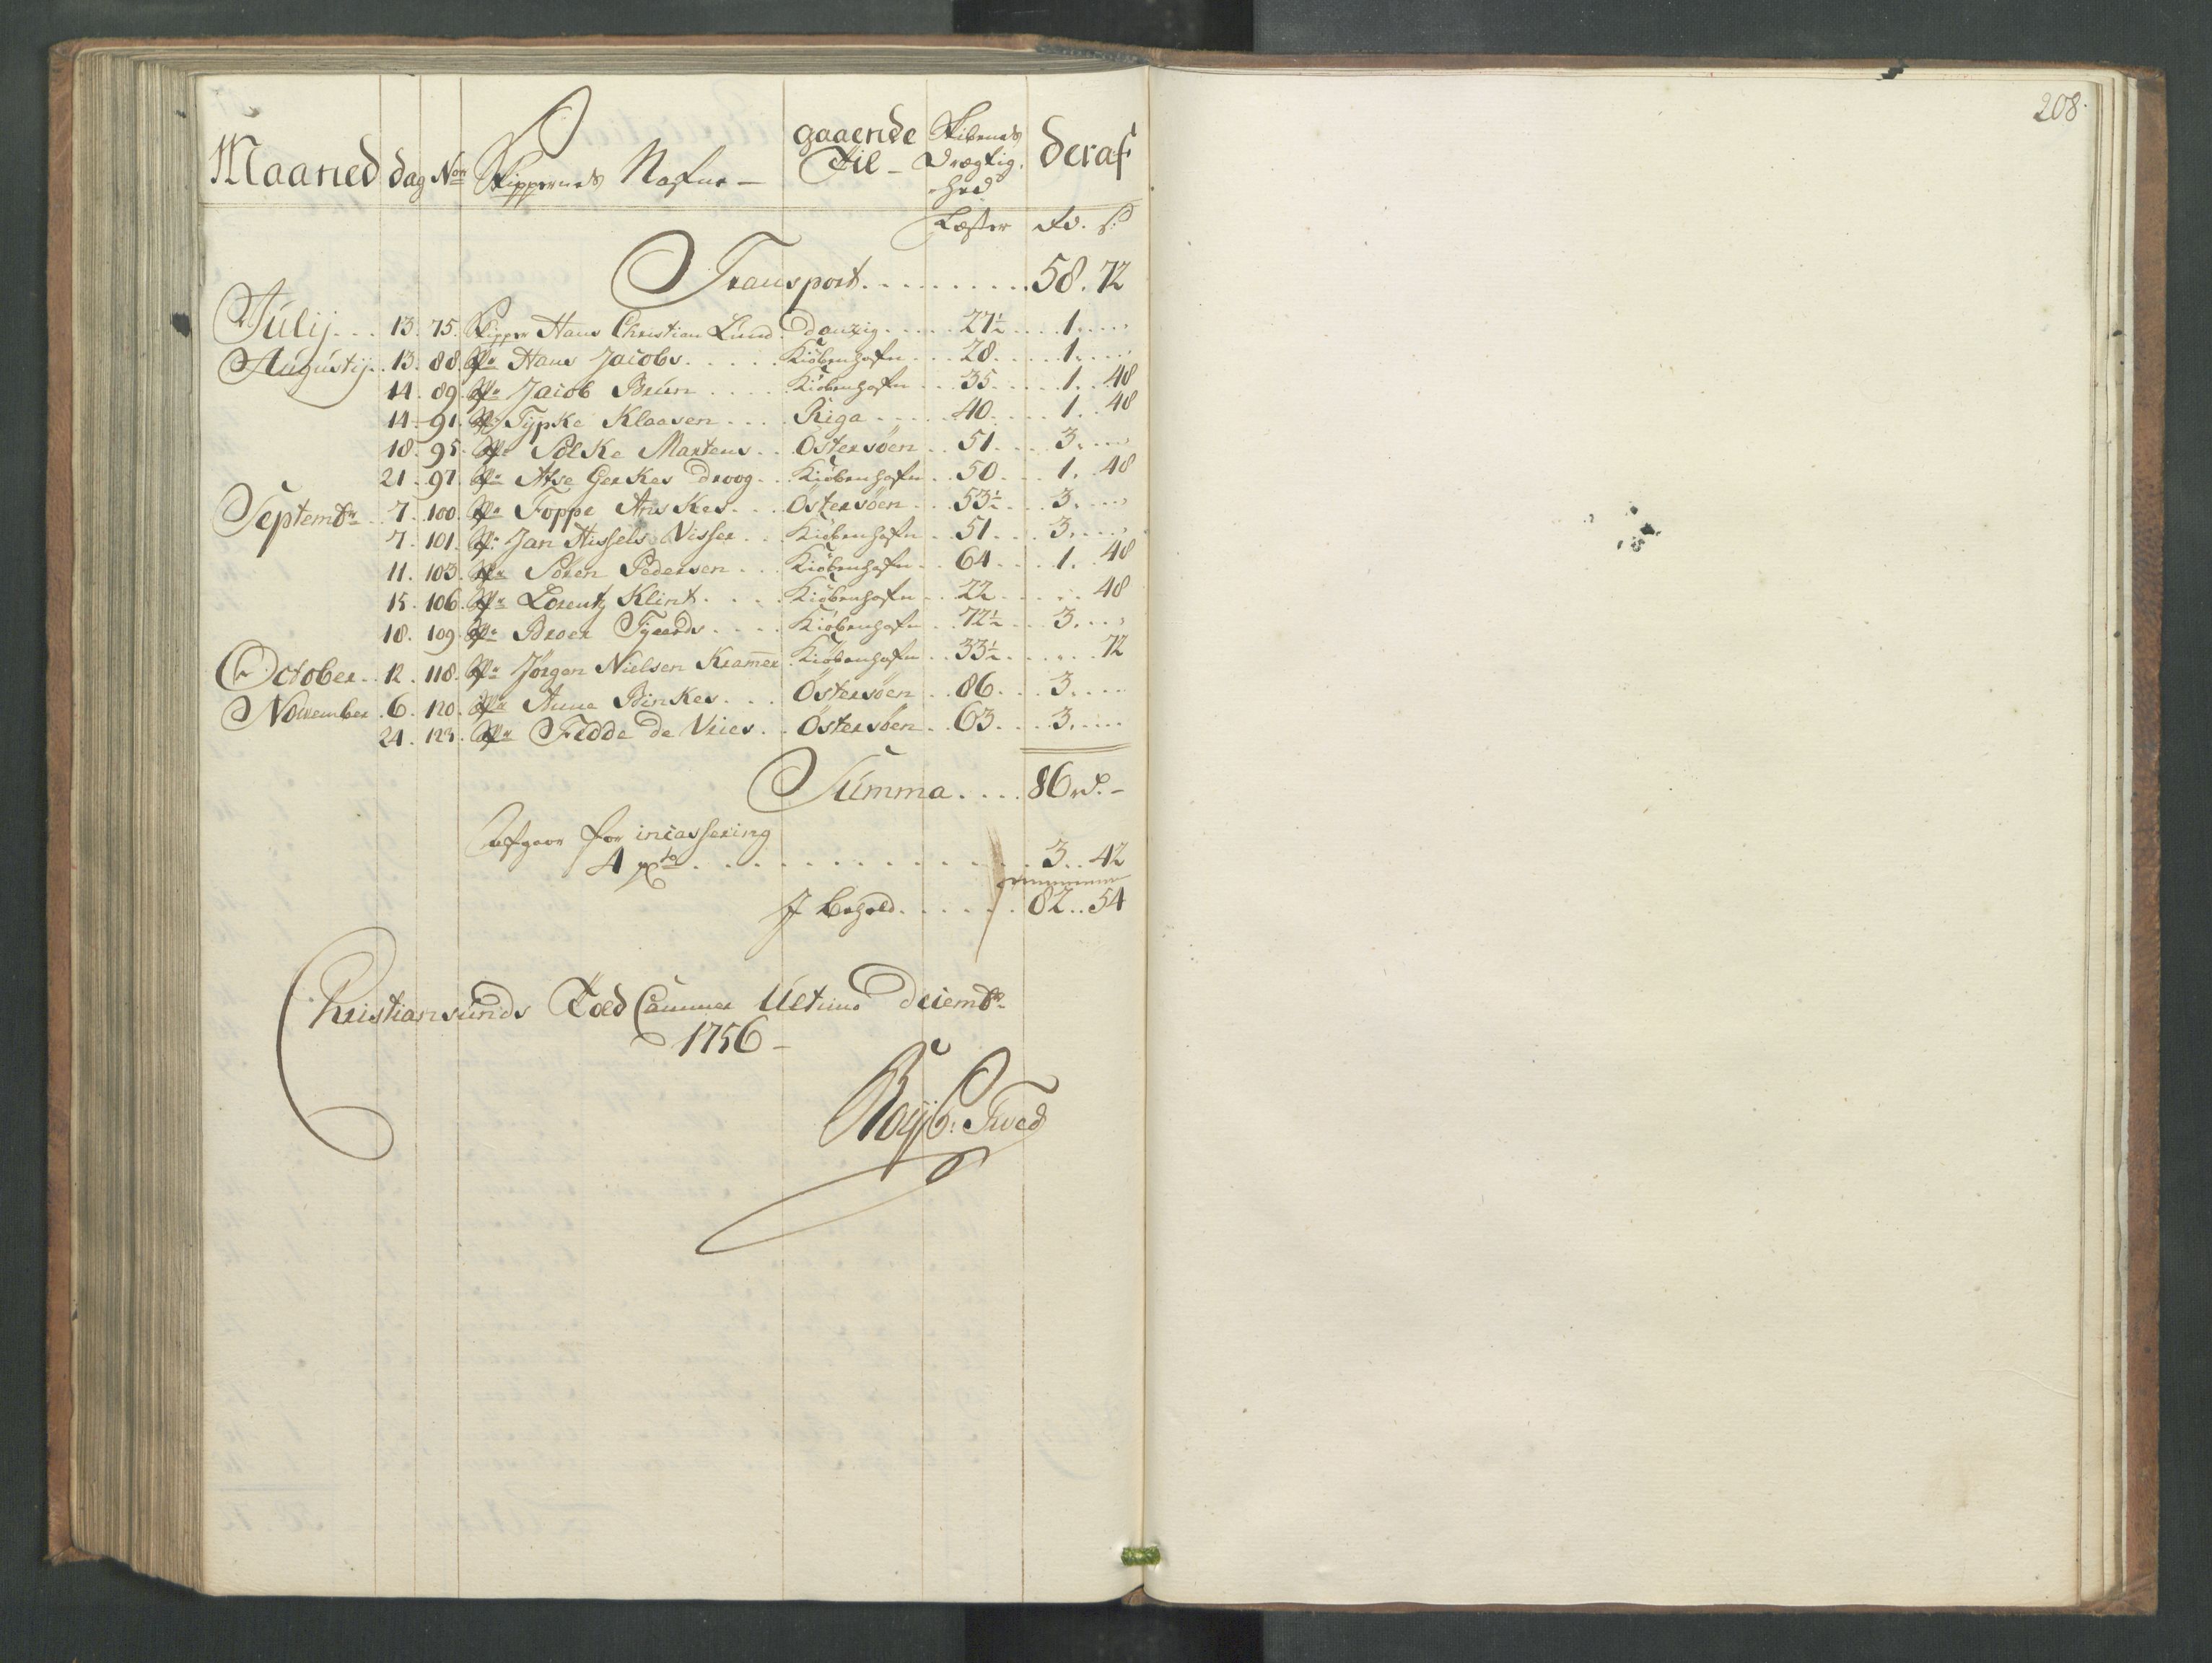 208.
Maaned dag Nor Skippernes Nafne - gaaende Til - Skibenes Drægtig-hed deraf
Læster rd. s
Transport 58. 72
Julij 13. 75. Skipper Hans Christian Lund Danzig 27½ 1.
Augustij 13. 88. Sr Hans Jacobs Kiöbenhafn 28 1.
14. 89. Sr Jacob Brun Kiöbenhafn 35 1. 48
14. 91. Sr Typke Klaasen Riga 40 1. 48
18. 95. Sr Sölke Martens Östersöen 51 3.
21. 97. Sr Atse Gerkes Droog Kiöbenhafn 50 1. 48
Septembr 7. 100. Sr Foppe Ariskes Östersöen 53½ 3.
7. 101. Sr Jan Hissels Visser Kiöbenhafn 51 3.
11. 103. Sr Sören Pedersen Kiöbenhafn 64 1. 48
15. 106. Sr Lorentz Klint Kiöbenhafn 22 48
18. 109. Sr Broer Tjeerds Kiöbenhafn 72½ 3.
October 12. 118. Sr Jörgen Nielsen Kramer Kiöbenhafn 33½ 72
November 6. 120. Sr Anne Binkes Östersöen 86 3.
24. 123. Sr Fedde de Vries Östersöen 63 3.
Summa 86 rd. -
Afgaar for incassering
4 pCto 3. 42
J Behold 82. 54
Christiansunds Told Cammer Ultimo Decembr
1756 -
Tved